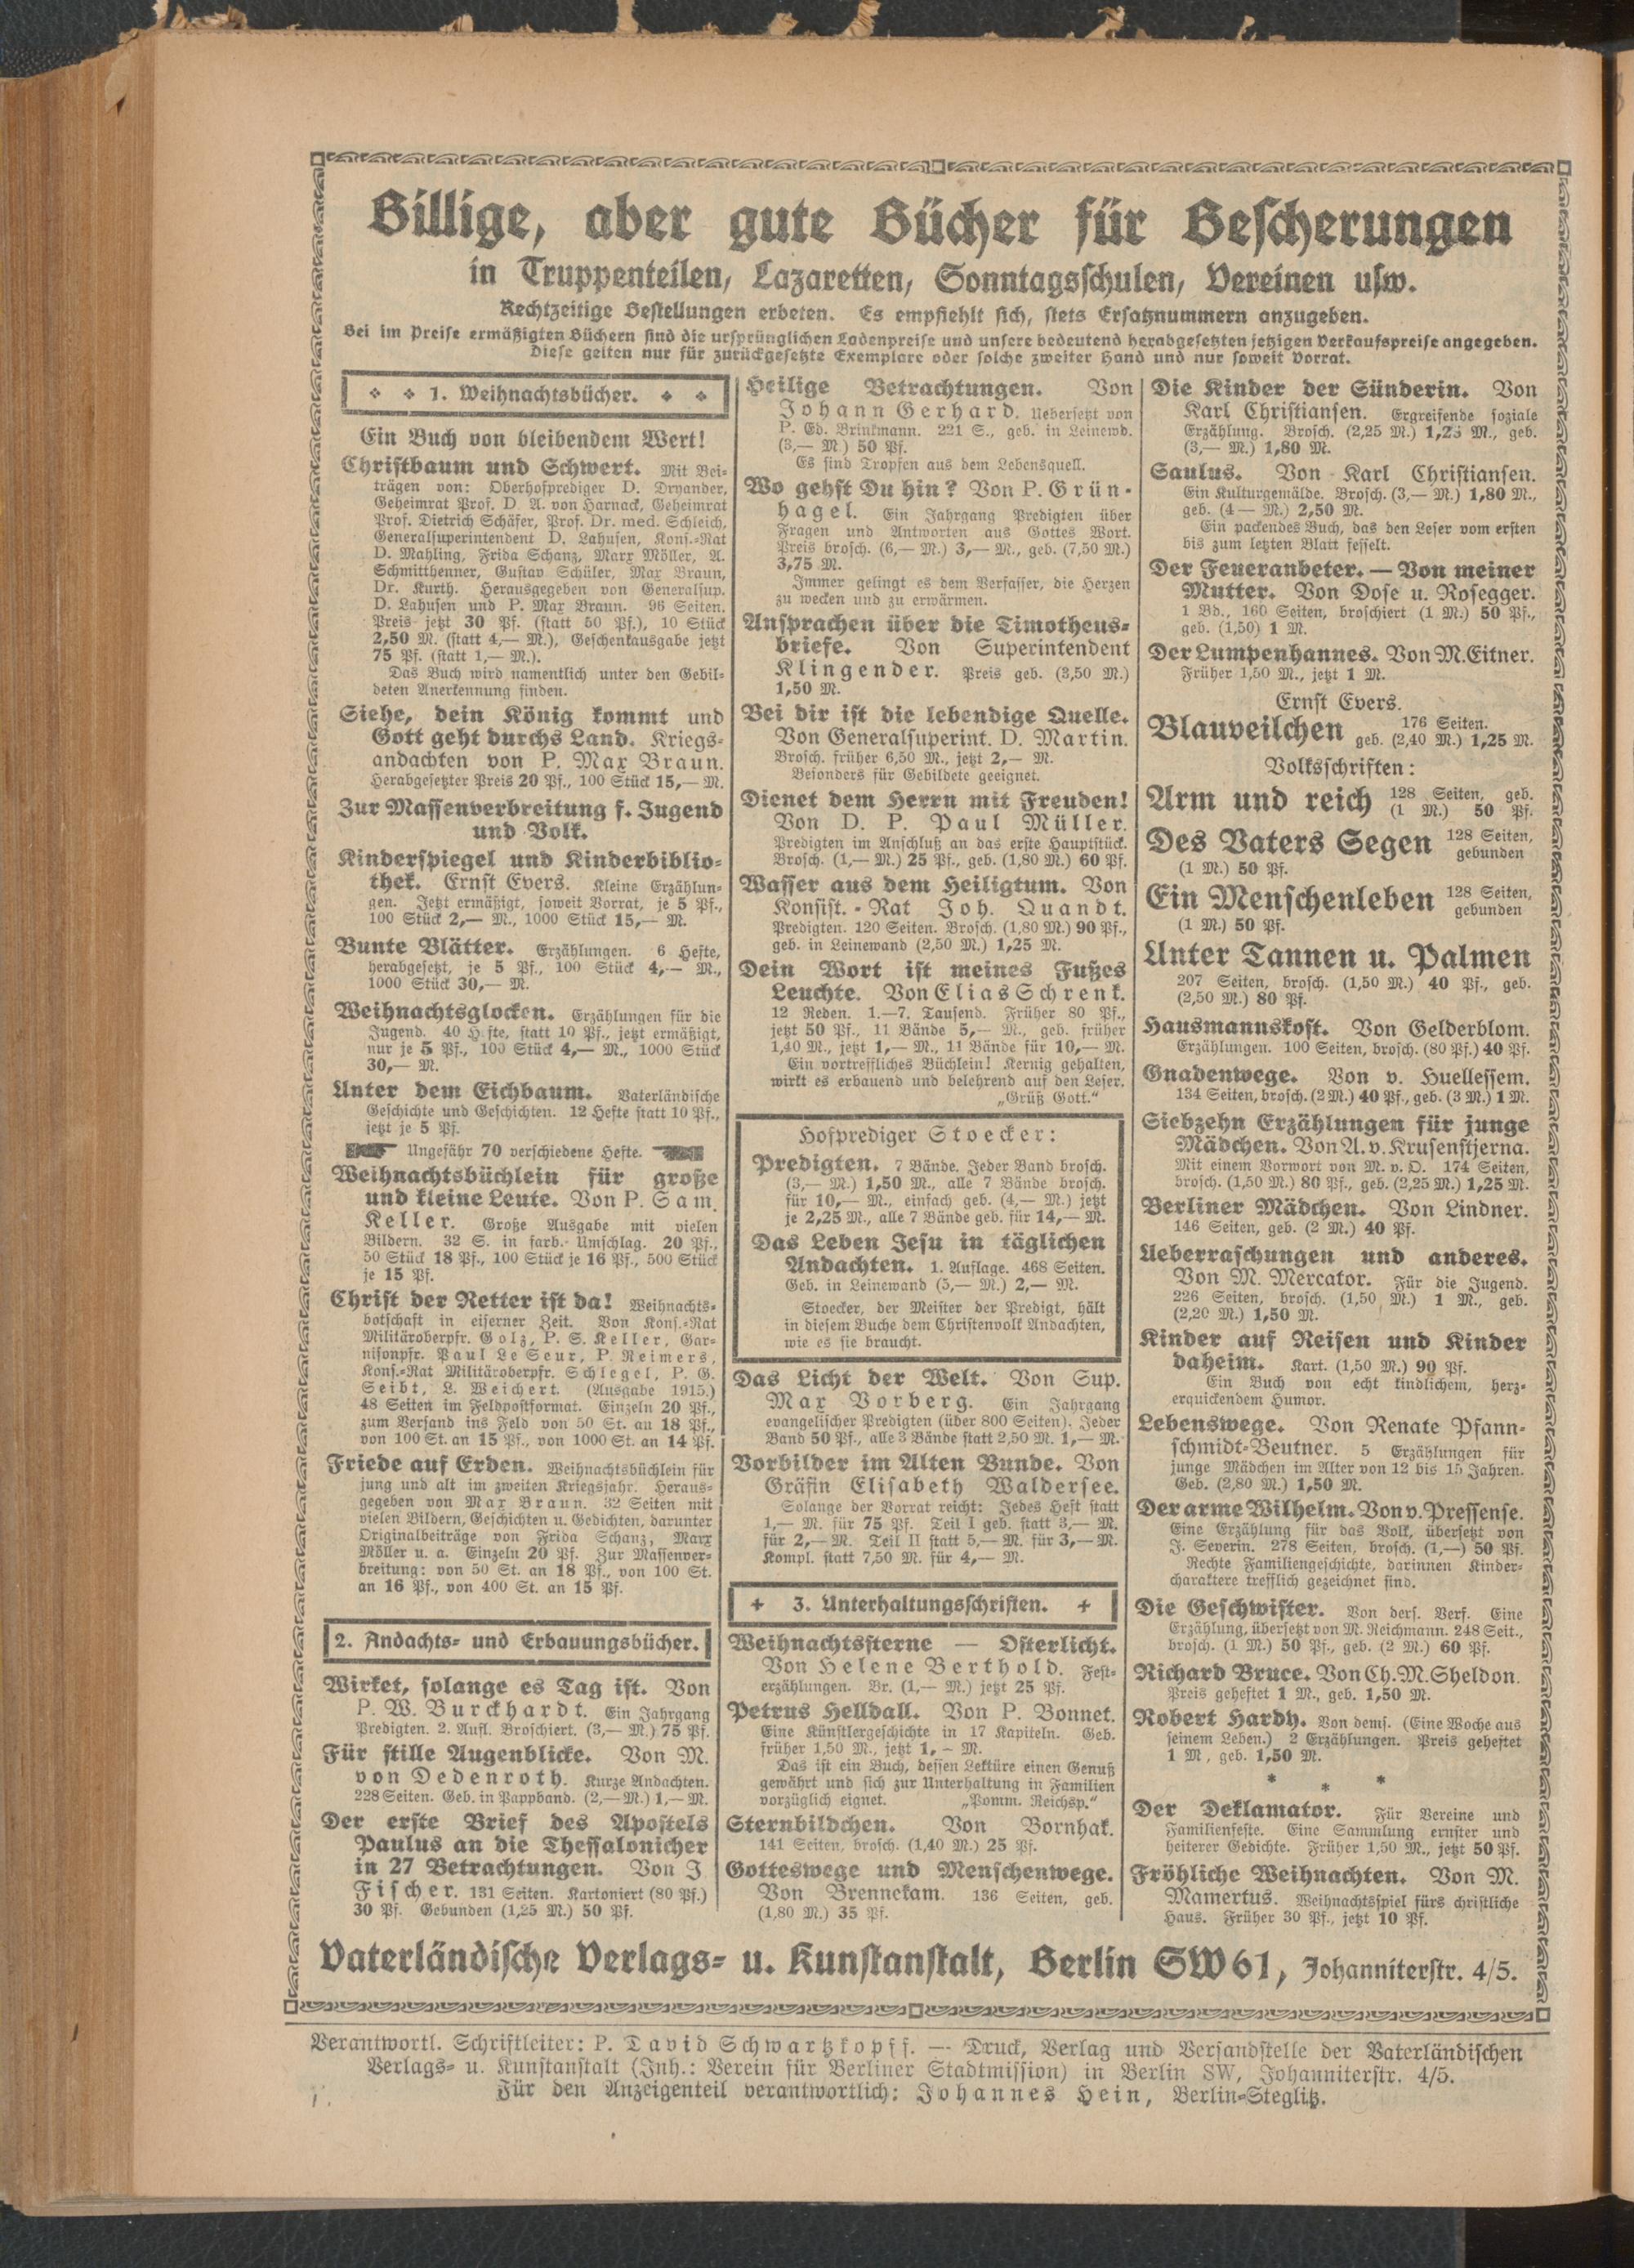 Billige, aber gute Bücher für Bescherungen
in Truppenteilen, Lazaretten, Sonntagsschulen, Vereinen usw.
Rechtzeitige Bestellungen erbeten. Es empfiehlt sich, stets Ersatznummern anzugeben.
Bei im Preise ermäßigten Büchern sind die ursprünglichen Ladenpreise und unsere bedeutend herabgesetzten jetzigen Verkaufspreise angegeben.
Diese gelten nur für zurückgesetzte Exemplare oder solche zweiter Hand und nur soweit Vorrat.
1. Weihnachtsbücher.
Ein Buch von bleibendem Wert!
Christbaum und Schwert. Mit Bei-
trägen von: Oberhofprediger D. Dryander,
Geheimrat Prof. D. A. von Harnack, Geheimrat
Prof. Dietrich Schäfer, Prof. Dr. med. Schleich,
Generalsuperintendent D. Lahusen, Kons.-Rat
D. Mahling, Frida Schanz, Marx Möller, A.
Schmitthenner, Gustav Schüler, Max Braun,
Dr. Kurth. Herausgegeben von Generalsup.
D. Lahusen und P. Max Braun. 96 Seiten.
Preis jetzt 30 Pf. (statt 50 Pf.), 10 Stück
2,50 M. (statt 4,— M.), Geschenkausgabe jetzt
75 Pf. (statt 1,— M.).
Das Buch wird namentlich unter den Gebil-
deten Anerkennung finden.
Siehe, dein König kommt und
Gott geht durchs Land. Kriegs-
andachten von P. Max Braun.
Herabgesetzter Preis 20 Pf., 100 Stück 15,— M.
Zur Massenverbreitung f. Jugend
und Volk.
Kinderspiegel und Kinderbiblio-
thek. Ernst Evers. Kleine Erzählun-
gen. Jetzt ermäßigt, soweit Vorrat, je 5 Pf.,
100 Stück 2,— M., 1000 Stück 15,— M.
Bunte Blätter. Erzählungen. 6 Hefte,
herabgesetzt, je 5 Pf., 100 Stück 4,— M.,
1000 Stück 30,— M.
Weihnachtsglocken. Erzählungen für die
Jugend. 40 Hefte, statt 10 Pf., jetzt ermäßigt,
nur je 5 Pf., 100 Stück 4,— M., 1000 Stück
30,— M.
Unter dem Eichbaum. Vaterländische
Geschichte und Geschichten. 12 Hefte statt 10 Pf.,
jetzt je 5 Pf.
Ungefähr 70 verschiedene Hefte.
Weihnachtsbüchlein für große
und kleine Leute. Von P. Sam.
Keller. Große Ausgabe mit vielen
Bildern. 32 S. in farb. Umschlag. 20 Pf.,
50 Stück 18 Pf., 100 Stück je 16 Pf., 500 Stück
je 15 Pf.
Christ der Retter ist da! Weihnachts-
botschaft in eiserner Zeit. Von Kons.-Rat
Militäroberpfr. Golz, P. S. Keller, Gar-
nisonpfr. Paul Le Seur, P. Reimers,
Kons.-Rat Militäroberpfr. Schlegel, P. G.
Seibt, L. Weichert. (Ausgabe 1915.)
48 Seiten im Feldpostformat. Einzeln 20 Pf.,
zum Versand ins Feld von 50 St. an 18 Pf.,
von 100 St. an 15 Pf., von 1000 St. an 14 Pf.
Friede auf Erden. Weihnachtsbüchlein für
jung und alt im zweiten Kriegsjahr. Heraus-
gegeben von Max Braun. 32 Seiten mit
vielen Bildern, Geschichten u. Gedichten, darunter
Originalbeiträge von Frida Schanz, Marx
Möller u. a. Einzeln 20 Pf. Zur Massenver-
breitung: von 50 St. an 18 Pf., von 100 St.
an 16 Pf., von 400 St. an 15 Pf.
2. Andachts- und Erbauungsbücher.
Wirket, solange es Tag ist. Von
P. W. Burckhardt. Ein Jahrgang
Predigten. 2. Aufl. Broschiert. (3,— M.) 75 Pf.
Für stille Augenblicke. Von M.
von Dedenroth. Kurze Andachten.
228 Seiten. Geb. in Pappband. (2,— M.) 1,— M.
Der erste Brief des Apostels
Paulus an die Thessalonicher
in 27 Betrachtungen. Von J.
Fischer. 131 Seiten. Kartoniert (80 Pf.)
30 Pf. Gebunden (1,25 M.) 50 Pf.
Heilige Betrachtungen. Von
Johann Gerhard. Uebersetzt von
P. Ed. Brinkmann. 221 S., geb. in Leinewd.
(3,— M.) 50 Pf.
Es sind Tropfen aus dem Lebensquell.
Wo gehst Du hin? Von P. Grün-
hagel. Ein Jahrgang Predigten über
Fragen und Antworten aus Gottes Wort.
Preis brosch. (6,— M.) 3,— M., geb. (7,50 M.)
3,75 M.
Immer gelingt es dem Verfasser, die Herzen
zu wecken und zu erwärmen.
Ansprachen über die Timotheus-
briefe. Von Superintendent
Klingender. Preis geb. (3,50 M.)
1,50 M.
Bei dir ist die lebendige Quelle.
Von Generalsuperint. D. Martin.
Brosch. früher 6,50 M., jetzt 2,— M.
Besonders für Gebildete geeignet.
Dienet dem Herrn mit Freuden!
Von D. P. Paul Müller.
Predigten im Anschluß an das erste Hauptstück.
Brosch. (1,— M.) 25 Pf., geb. (1,80 M.) 60 Pf.
Wasser aus dem Heiligtum. Von
Konsist.-Rat Joh. Quandt.
Predigten. 120 Seiten. Brosch. (1,80 M.) 90 Pf.,
geb. in Leinewand (2,50 M.) 1,25 M.
Dein Wort ist meines Fußes
Leuchte. Von Elias Schrenk.
12 Reden. 1.—7. Tausend. Früher 80 Pf.,
jetzt 50 Pf., 11 Bände 5,— M., geb. früher
1,40 M., jetzt 1,— M., 11 Bände für 10,— M.
Ein vortreffliches Büchlein! Kernig gehalten,
wirkt es erbauend und belehrend auf den Leser.
„Grüß Gott.“
Hofprediger Stoecker:
Predigten. 7 Bände. Jeder Band brosch.
(3,— M.) 1,50 M., alle 7 Bände brosch.
für 10,— M., einfach geb. (4,— M.) jetzt
je 2,25 M., alle 7 Bände geb. für 14,— M.
Das Leben Jesu in täglichen
Andachten. 1. Auflage. 468 Seiten.
Geb. in Leinewand (5,— M.) 2,— M.
Stoecker, der Meister der Predigt, hält
in diesem Buche dem Christenvolk Andachten,
wie es sie braucht.
Das Licht der Welt. Von Sup.
Max Vorberg. Ein Jahrgang
evangelischer Predigten (über 800 Seiten). Jeder
Band 50 Pf., alle 3 Bände statt 2,50 M. 1,— M.
Vorbilder im Alten Bunde. Von
Gräfin Elisabeth Waldersee.
Solange der Vorrat reicht: Jedes Heft statt
1,— M. für 75 Pf. Teil I geb. statt 3,— M.
für 2,— M. Teil II statt 5,— M. für 3,— M.
Kompl. statt 7,50 M. für 4,— M.
3. Unterhaltungsschriften.
Weihnachtssterne — Osterlicht.
Von Helene Berthold. Fest-
erzählungen. Br. (1,— M.) jetzt 25 Pf.
Petrus Helldall. Von P. Bonnet.
Eine Künstlergeschichte in 17 Kapiteln. Geb.
früher 1,50 M., jetzt 1,— M.
Das ist ein Buch, dessen Lektüre einen Genuß
gewährt und sich zur Unterhaltung in Familien
vorzüglich eignet. „Pomm. Reichsp.“
Sternbildchen. Von Bornhak.
141 Seiten, brosch. (1,40 M.) 25 Pf.
Gotteswege und Menschenwege.
Von Brennekam. 136 Seiten, geb.
(1,80 M.) 35 Pf.
Die Kinder der Sünderin. Von
Karl Christiansen. Ergreifende soziale
Erzählung. Brosch. (2,25 M.) 1,25 M., geb.
(3,— M.) 1,80 M.
Saulus. Von Karl Christiansen.
Ein Kulturgemälde. Brosch. (3,— M.) 1,80 M.,
geb. (4 — M.) 2,50 M.
Ein packendes Buch, das den Leser vom ersten
bis zum letzten Blatt fesselt.
Der Feueranbeter. — Von meiner
Mutter. Von Dose u. Rosegger.
1 Bd., 160 Seiten, broschiert (1 M.) 50 Pf.,
geb. (1,50) 1 M.
Der Lumpenhannes. Von M. Eitner.
Früher 1,50 M., jetzt 1 M.
Ernst Evers.
Blauveilchen 176 Seiten.
geb. (2,40 M.) 1,25 M.
Volksschriften:
Arm und reich 128 Seiten, geb.
(1 M.) 50 Pf.
Des Vaters Segen 128 Seiten,
gebunden
(1 M.) 50 Pf.
Ein Menschenleben 128 Seiten,
gebunden
(1 M.) 50 Pf.
Unter Tannen u. Palmen
207 Seiten, brosch. (1,50 M.) 40 Pf., geb.
(2,50 M.) 80 Pf.
Hausmannskost. Von Gelderblom.
Erzählungen. 100 Seiten, brosch. (80 Pf.) 40 Pf.
Gnadenwege. Von v. Huellessem.
134 Seiten, brosch. (2 M.) 40 Pf., geb. (3 M.) 1 M.
Siebzehn Erzählungen für junge
Mädchen. Von A. v. Krusenstjerna.
Mit einem Vorwort von M. v. O. 174 Seiten,
brosch. (1,50 M.) 80 Pf., geb. (2,25 M.) 1,25 M.
Berliner Mädchen. Von Lindner.
146 Seiten, geb. (2 M.) 40 Pf.
Ueberraschungen und anderes.
Von M. Mercator. Für die Jugend.
226 Seiten, brosch. (1,50 M.) 1 M., geb.
(2,20 M.) 1,50 M.
Kinder auf Reisen und Kinder
daheim. Kart. (1,50 M.) 90 Pf.
Ein Buch von echt kindlichem, herz-
erquickendem Humor.
Lebenswege. Von Renate Pfann-
schmidt-Beutner. 5 Erzählungen für
junge Mädchen im Alter von 12 bis 15 Jahren.
Geb. (2,80 M.) 1,50 M.
Der arme Wilhelm. Von v. Pressense.
Eine Erzählung für das Volk, übersetzt von
J. Severin. 278 Seiten, brosch. (1,—) 50 Pf.
Rechte Familiengeschichte, darinnen Kinder-
charaktere trefflich gezeichnet sind.
Die Geschwister. Von ders. Verf. Eine
Erzählung, übersetzt von M. Reichmann. 248 Seit.,
brosch. (1 M.) 50 Pf., geb. (2 M.) 60 Pf.
Richard Bruce. Von Ch. M. Sheldon.
Preis geheftet 1 M., geb. 1,50 M.
Robert Hardy. Von dems. (Eine Woche aus
seinem Leben.) 2 Erzählungen. Preis geheftet
1 M., geb. 1,50 M.
* * *
Der Deklamator. Für Vereine und
Familienfeste. Eine Sammlung ernster und
heiterer Gedichte. Früher 1,50 M., jetzt 50 Pf.
Fröhliche Weihnachten. Von M.
Mamertus. Weihnachtsspiel fürs christliche
Haus. Früher 30 Pf., jetzt 10 Pf.
Vaterländische Verlags- u. Kunstanstalt, Berlin SW 61, Johanniterstr. 4/5.
Verantwortl. Schriftleiter: P. David Schwartzkopff. — Druck, Verlag und Versandstelle der Vaterländischen
Verlags- u. Kunstanstalt (Inh.: Verein für Berliner Stadtmission) in Berlin SW, Johanniterstr. 4/5.
Für den Anzeigenteil verantwortlich: Johannes Hein, Berlin-Steglitz.